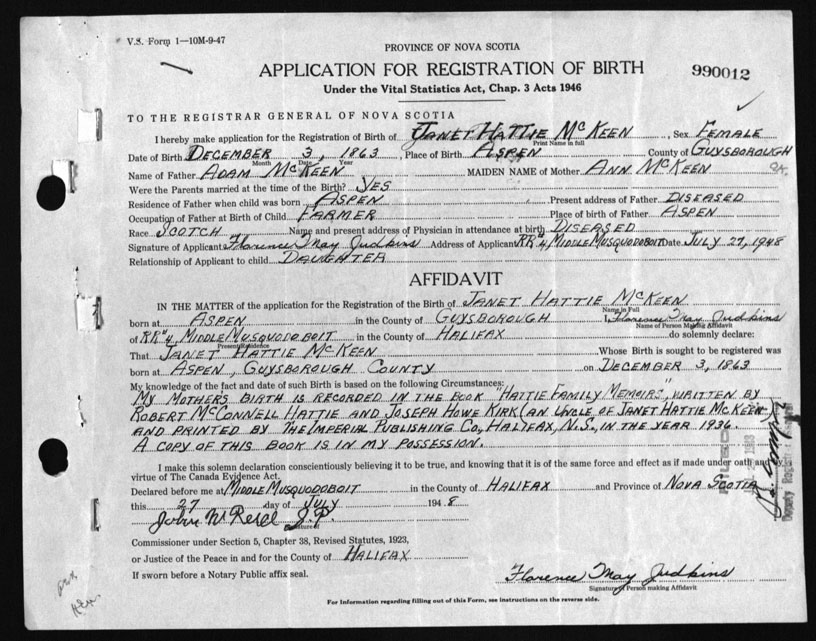 V.S. Form 1—10M-9-47
PROVINCE OF NOVA SCOTIA
APPLICATION FOR REGISTRATION OF BIRTH
990012
Under the Vital Statistics Act, Chap. 3 Acts 1946
TO THE REGISTRAR GENERAL OF NOVA SCOTIA
I hereby make application for the Registration of Birth of JANET HATTIE McKEEN, Sex FEMALE
Print Name in full
Date of Birth DECEMBER 3, 1863, Place of Birth ASPEN County of GUYSBOROUGH
Month Date Year
Name of Father ADAM McKEEN MAIDEN NAME of Mother ANN McKEEN
Were the Parents married at the time of the Birth? YES
Residence of Father when child was born ASPEN Present address of Father DISEASED
Occupation of Father at Birth of Child FARMER Place of birth of Father ASPEN
Race SCOTCH Name and present address of Physician in attendance at birth DISEASED
Signature of Applicant Florence May Judkins Address of Applicant RR#4, MIDDLE MUSQUODOBOIT Date JULY 27, 1948
Relationship of Applicant to child DAUGHTER
AFFIDAVIT
IN THE MATTER of the application for the Registration of the Birth of JANET HATTIE McKEEN
Name in Full
born at ASPEN in the County of GUYSBOROUGH I, Florence May Judkins
Name of Person Making Affidavit
of RR#4, MIDDLE MUSQUODOBOIT in the County of HALIFAX do solemnly declare:
Present Residence
That JANET HATTIE McKEEN Whose Birth is sought to be registered was
born at ASPEN, GUYSBOROUGH COUNTY on DECEMBER 3, 1863
My knowledge of the fact and date of such Birth is based on the following Circumstances:
MY MOTHERS BIRTH IS RECORDED IN THE BOOK "HATTIE FAMILY MEMOIRS", WRITTEN BY
ROBERT McCONNELL HATTIE AND JOSEPH HOWE KIRK (AN UNCLE OF JANET HATTIE McKEEN)
AND PRINTED BY THE IMPERIAL PUBLISHING CO, HALIFAX, N.S., IN THE YEAR 1936.
A COPY OF THIS BOOK IS IN MY POSSESSION.
I make this solemn declaration conscientiously believing it to be true, and knowing that it is of the same force and effect as if made under oath and by
virtue of The Canada Evidence Act.
Declared before me at MIDDLE MUSQUODOBOIT in the County of HALIFAX and Province of NOVA SCOTIA
this 27 day of JULY 1948
John W Reid J.P.
Signature of
Commissioner under Section 5, Chapter 38, Revised Statutes, 1923,
or Justice of the Peace in and for the County of HALIFAX
If sworn before a Notary Public affix seal.
Florence May Judkins
Signature of Person making Affidavit
For Information regarding filling out of this Form, see instructions on the reverse side.
Deputy Registrar General